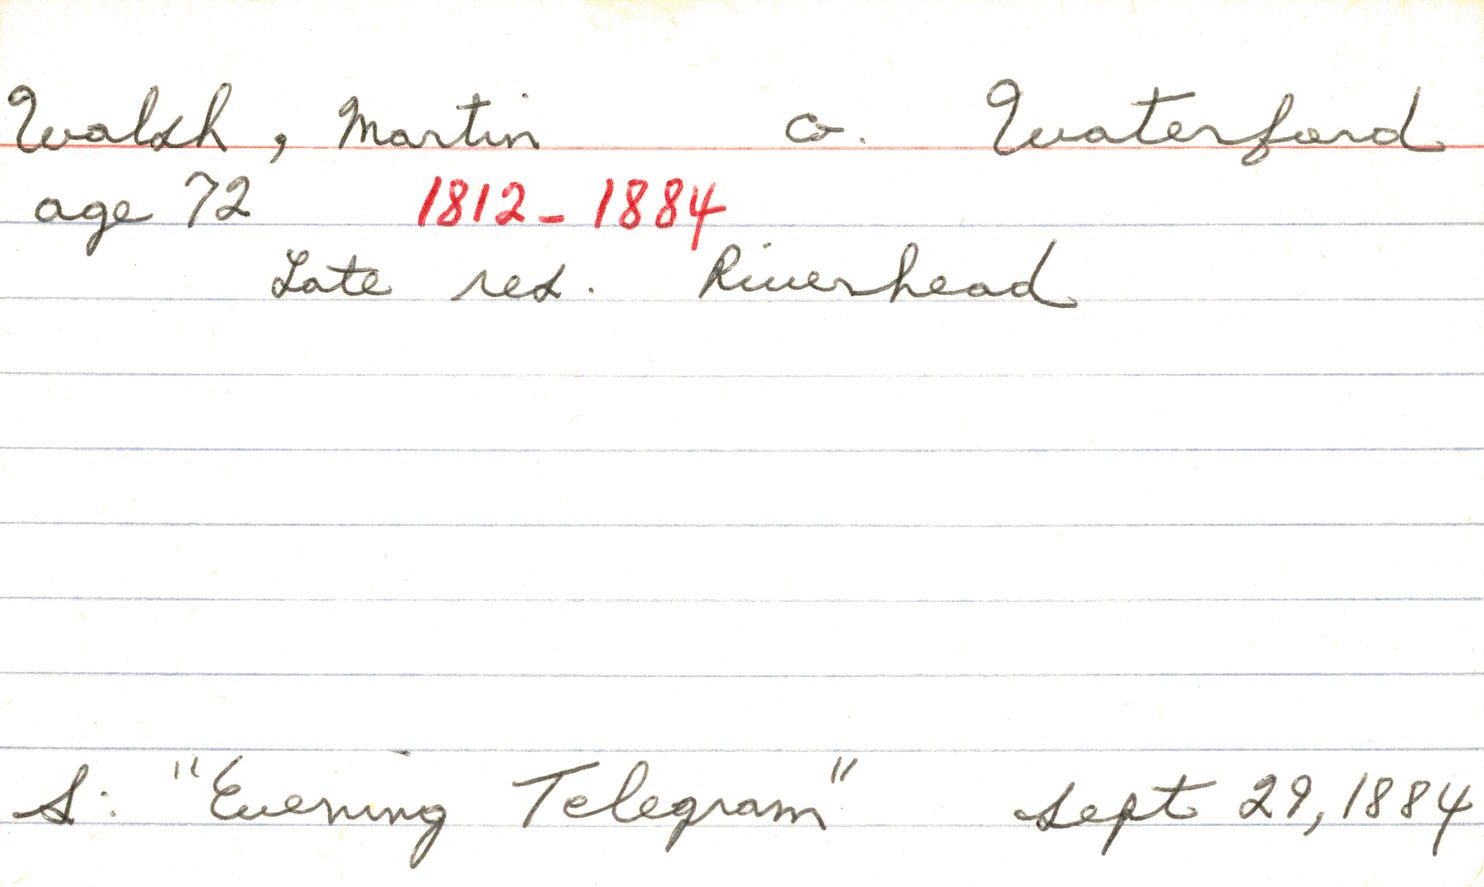 Walsh, Martin co. Waterford
age 72 1812-1884
Late res. Riverhead
S: "Evening Telegram" Sept 29, 1884